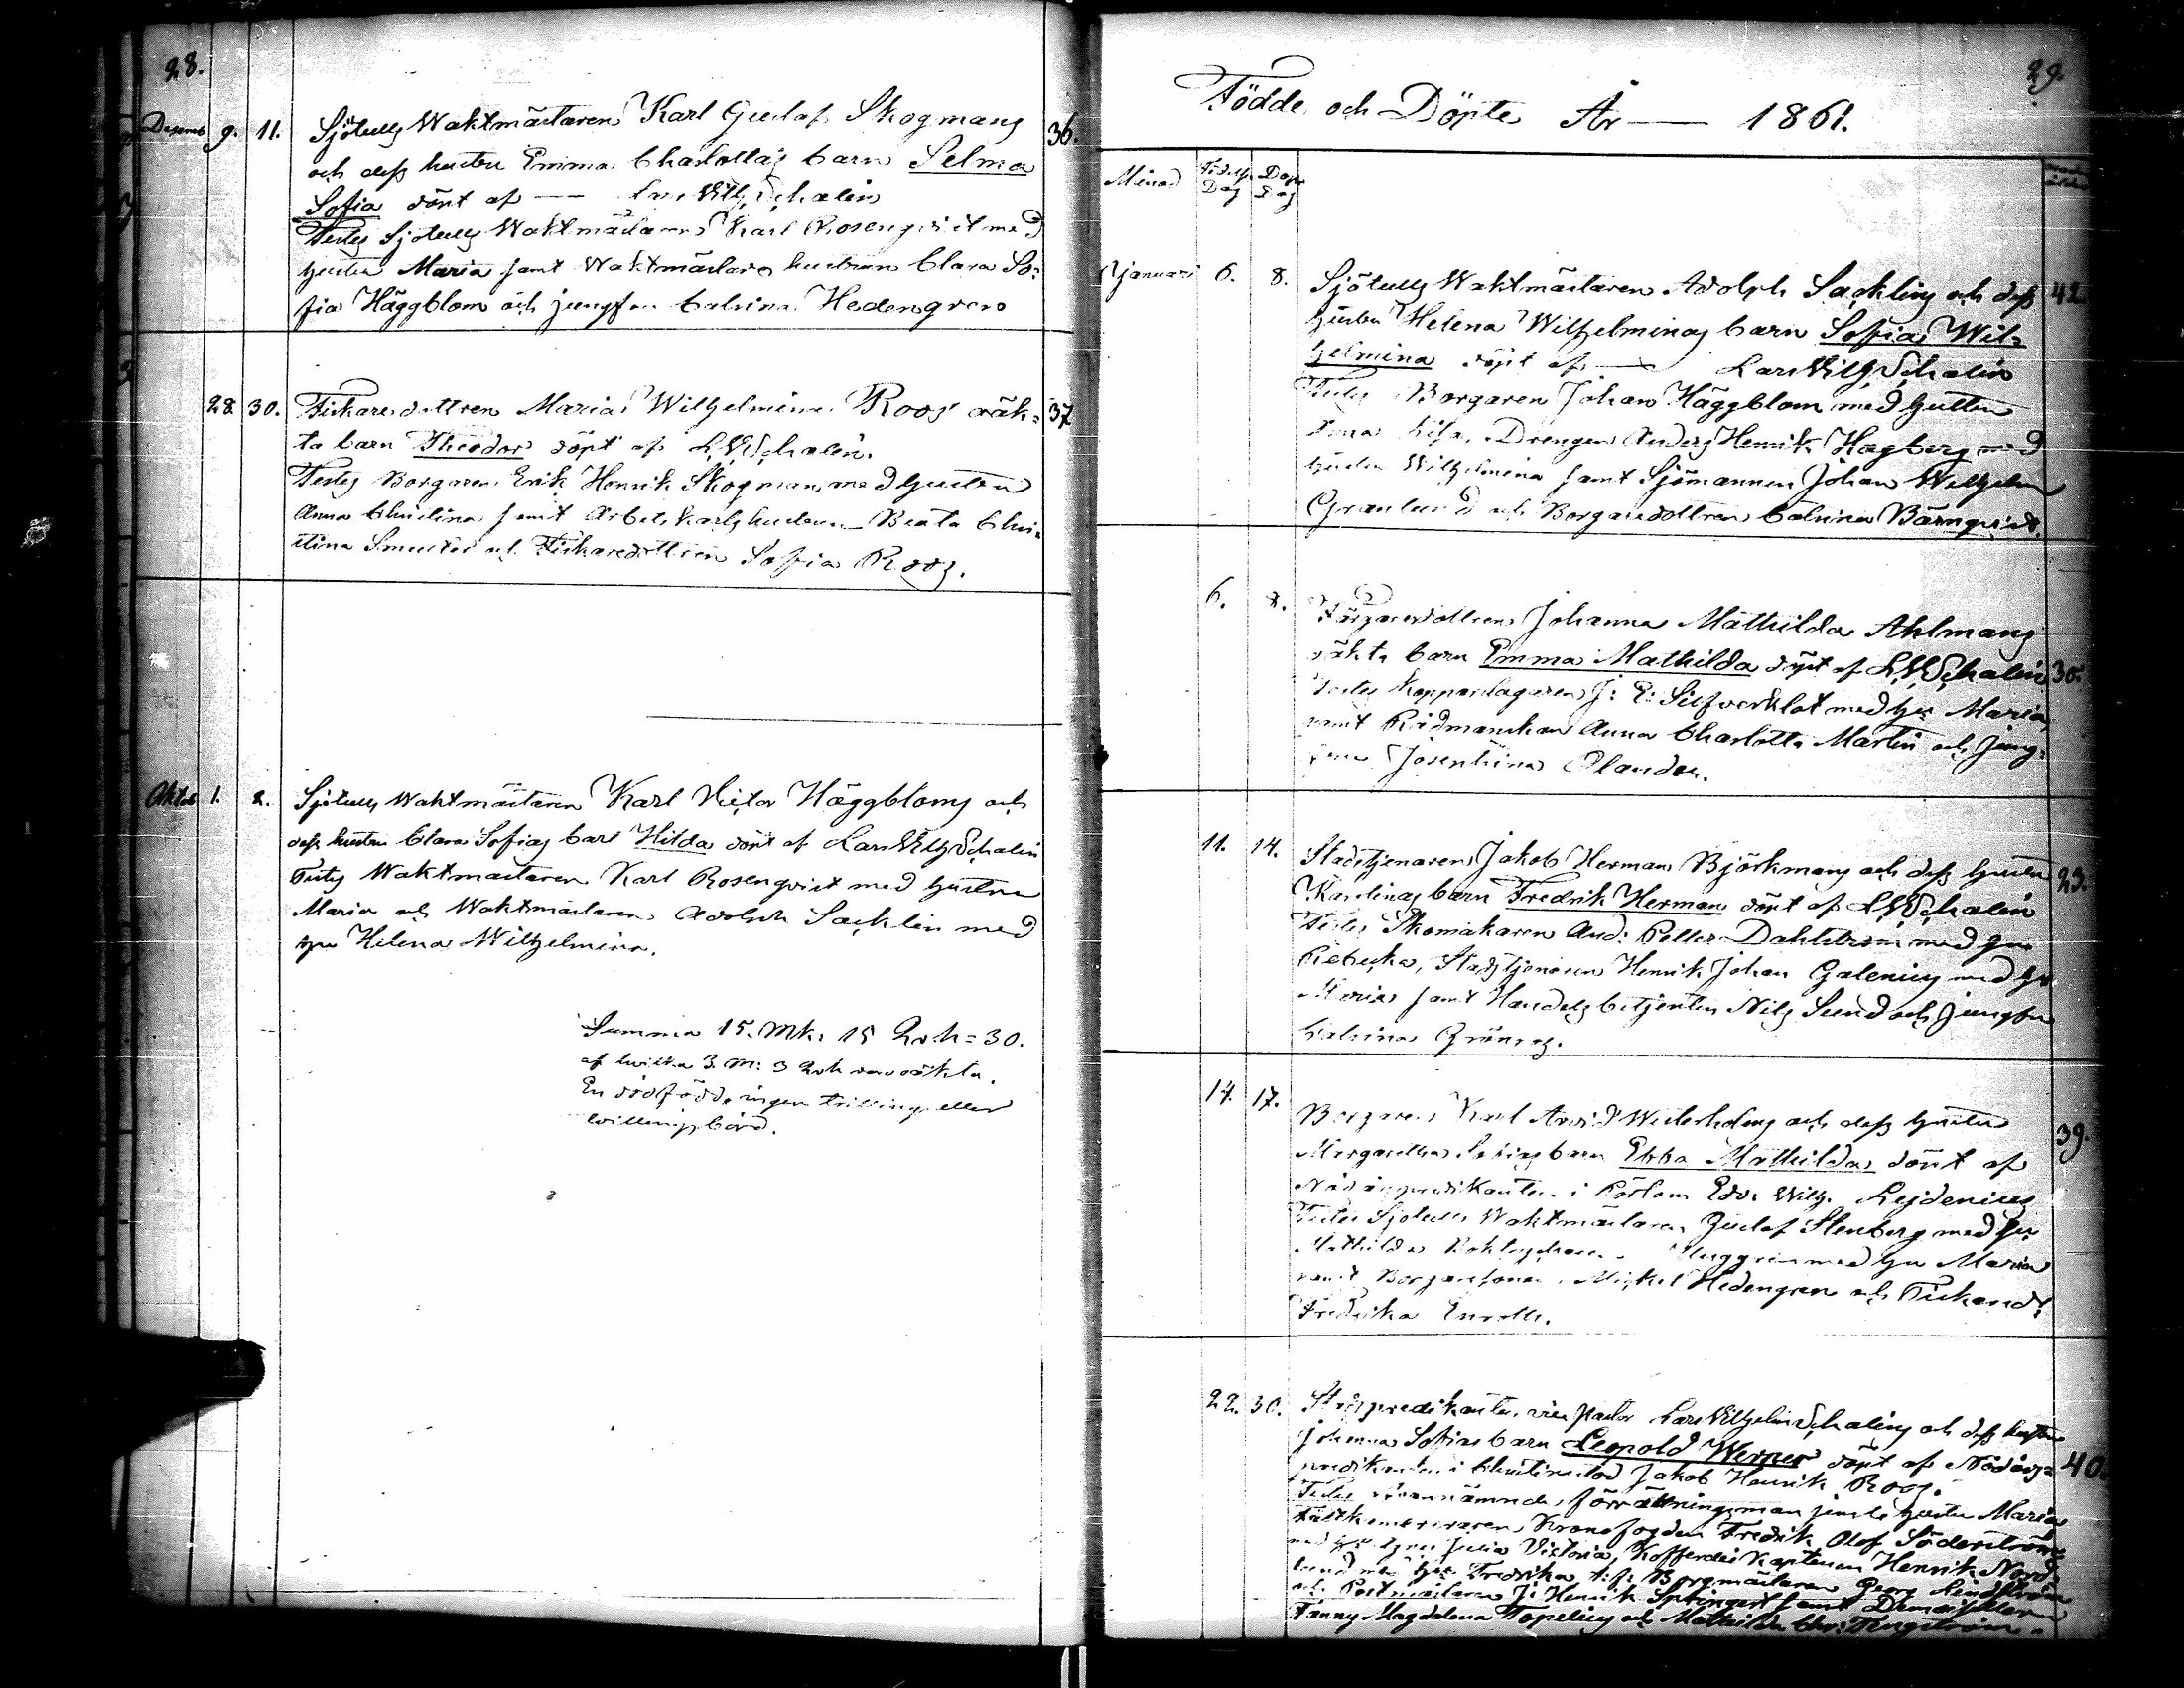 28.
Decemb 9. 11. Sjötulls Waktmästaren Karl Gustaf Skogmans 36.
och dess hustru Emma Charlottas barn Selma
Sofia döpt af — Lars Wilh. Schalin
Testes Sjötulls Waktmästaren Karl Rosenqvist med
hustru Maria samt Waktmästare hustrun Clara So-
fia Häggblom och jungfru Catrina Hedengren
28. 30. Fiskaredottren Maria Wilhelmina Roos' oäk- 37
ta barn Theodor döpt af L.W.Schalin.
Testes Borgaren Erik Henrik Skogman med hustru
Anna Christina samt Arbetskarls hustrun Beata Chri-
stina och Fiskaredottren Sofia Roos.
Oktob 1. 2. Sjötulls Waktmästaren Karl Victor Häggbloms och
dess hustru Clara Sofias barn Hilda döpt af Lars Wilh. Schalin
Testes Waktmästaren Karl Rosenqvist med hustru
Maria och Waktmästaren Adolph Sacklin med
hu Helena Wilhelmina.
Summa 15. Mk. 15 Qvk = 30.
af hvilka 3 M: 3 Qvk voro oäkta.
En dödfödd, ingen trilling eller
tvillingsbörd.
29.
Födde och Döpte År — 1861.
Månad Födelse Dag Dops Dag
Januari 6. 8. Sjötulls Waktmästaren Adolph Sacklins och dess 42
hustru Helena Wilhelminas barn Sofia Wil-
helmina döpt af — Lars Wilh. Schalin
Testes Borgaren Johan Häggblom med hustru
Drengen Anders Henrik Hagberg med
hustru Wilhelmina samt Sjömannen Johan Wilhelm
Granlund och Borgaredottren Catrina Bärnqvist.
6. Färgaredottren Johanna Mathilda Ahlmans
oäkta barn Emma Mathilda döpt af L.W.Schalin 30.
Testes Kopparslagaren J: E: Silfverklot med hu Maria,
samt Rådmanskan Anna Charlotta Martin och Jung-
frun Josephina Elander.
11. 14. Stadstjenaren Jakob Herman Björkmans och dess hustru 23.
Karolinas barn Fredrik Herman döpt af L.W.Schalin
Testes Skomakaren And: Petter Dahlström med hu
Rebecka, Stadstjenaren Henrik Johan Galenius med hu
Maria samt Handelsbetjenten Nils Sund och Jungfru
Catrina
14. 17. Borgaren Karl Arvid Westerholms och dess hustru 39.
Margaretha barn Ebba Mathilda döpt af
Nådårspredikanten i Pörtom Edv. Wilh. Lejdenius
Testes Sjötulls Waktmästaren Gustaf Stenberg med hu
Mathilda med hu Maria
samt Borgaresonen Mickel Hedengren och Fiskared:
Fredrika
22. 30. Stadspredikanten, vice Pastor Lars Wilhelm Schalins och dess hustru
Johanna Sofias barn Leopold Werner döpt af Nådårs- 40.
predikanten i Christinestad Jakob Henrik Roos.
Testes ofvannämnde förrättningsman jemte hustru Maria
Kronofogden Fredrik Olof Söderström
med Julia Victoria, Kofferdie Kaptenen Henrik Nord-
lund med hu Fredrika, t.f. Borgmästaren Georg Lindström
och Postmästaren J: Henrik Springert samt Demoisellerna
Fanny Magdalena Topelius och Mathilda Engström.